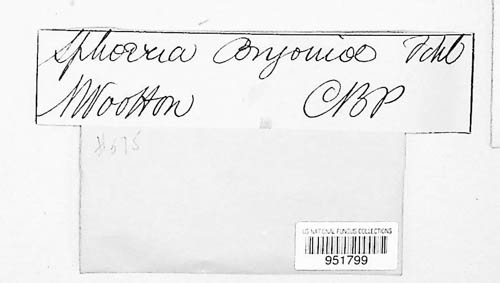 Sphaeria Bryoniae Fckl
N Wootton CBP
#575
US NATIONAL FUNGUS COLLECTIONS
951799